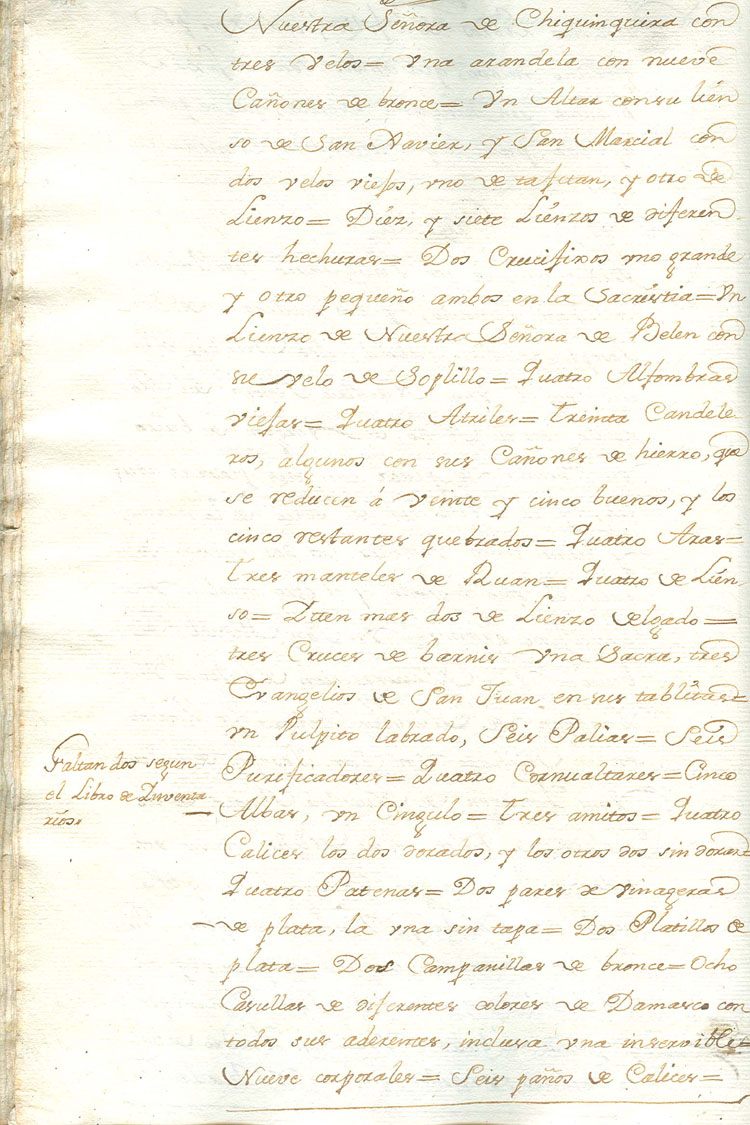 Nuestra Señora de Chiquinquira con
tres velos= vna arandela con nueve
Cañones de bronce= Vn Altar con su lien
so de San Xavier, y San Marcial con
dos velos viejos, vno de tafetan, y otro de
Lienzo= Diez, y siete Lienzos de diferen
tes hechuras= Dos Crucifixos vno grande
y otro pequeño ambos en la Sacristia= Vn
Lienzo de Nuestra Señora de Belen con
su velo de Soplillo= Quatro Alfombras
viejas= Quatro Atriles= Treinta Candele
ros, algunos con sus Cañones de hierro, que
se reducen á veinte y cinco buenos, y los
cinco restantes quebrados= Quatro Aras=
Tres manteles de Ruan= Quatro de Lien
so= Itten mas dos de Lienzo delgado=
tres Cruces de barnis vna Sacra, tres
Evangelios de San Juan en sus tablitas=
vn Pulpito labrado, Seis Palias= Seis
Purificadores= Quatro Cornualtares= Cinco
Faltan dos segun
el Libro de Inventa
rios.
Albas, vn Cingulo= Tres amitos= Quatro
Calices los dos dorados, y los otros dos sin dorar=
Quatro Patenas= Dos pares de vinageras
de plata, la vna sin tapa= Dos Platillos de
plata= Dos Campanillas de bronce= Ocho
Casullas de diferentes colores de Damasco con
todos sus aderentes, inclusa vna inservible=
Nueve corporales= Seis paños de Calices=